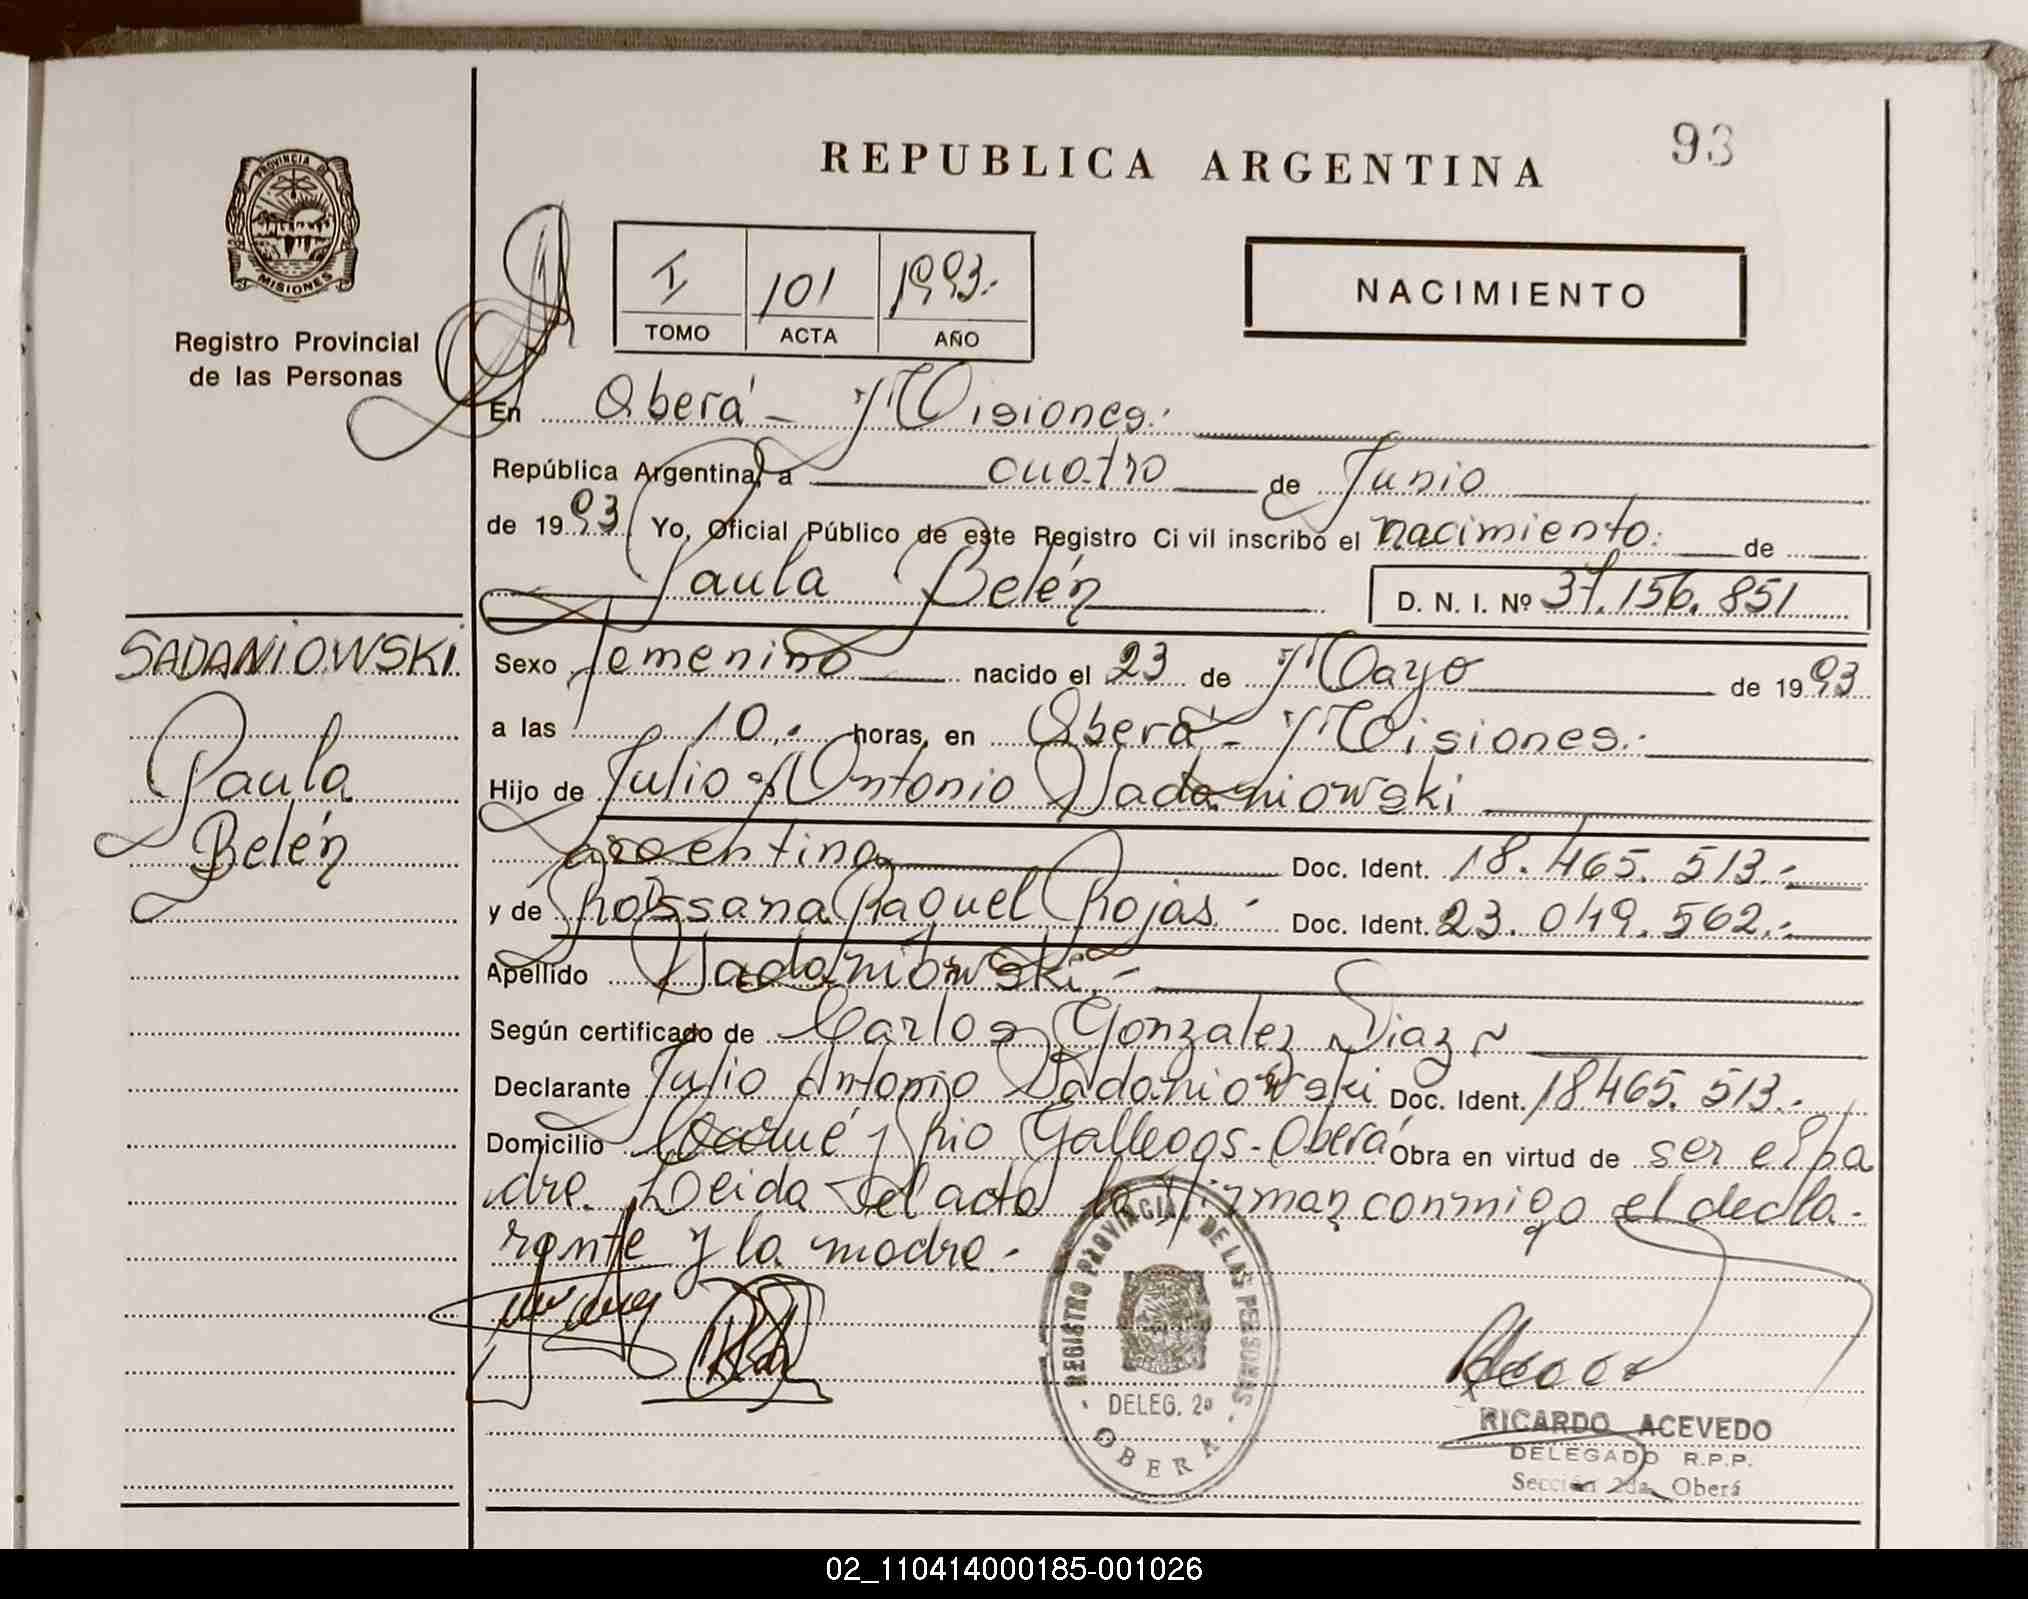 REPUBLICA ARGENTINA
93
PROVINCIA DE
MISIONES
Registro Provincial
de las Personas
I 101 1993.-
TOMO ACTA AÑO
NACIMIENTO
En Oberá - Misiones.-
República Argentina, a cuatro de Junio
de 1993 Yo, Oficial Público de este Registro Civil inscribo el nacimiento. de
Paula Belén D. N. I. Nº 37.156.851
SADANIOWSKI
Paula
Belén
Sexo femenino nacido el 23 de Mayo de 1993
a las 10.- horas, en Oberá - Misiones.-
Hijo de Julio Antonio Sadaniowski
Argentina Doc. Ident. 18.465.513.-
y de Rossana Raquel Rojas.- Doc. Ident. 23.049.562.-
Apellido Sadaniowski.-
Según certificado de Carlos Gonzalez Diaz
Declarante Julio Antonio Sadaniowski Doc. Ident. 18465.513.-
Domicilio y Rio Gallegos - Oberá Obra en virtud de ser el pa
dre. Leida el acta la firman conmigo el decla-
rante y la madre.-
REGISTRO PROVINCIAL DE LAS PERSONAS
DELEG. 2ª
OBERA
RICARDO ACEVEDO
DELEGADO R.P.P.
Sección 2da. Oberá
02_110414000185-001026